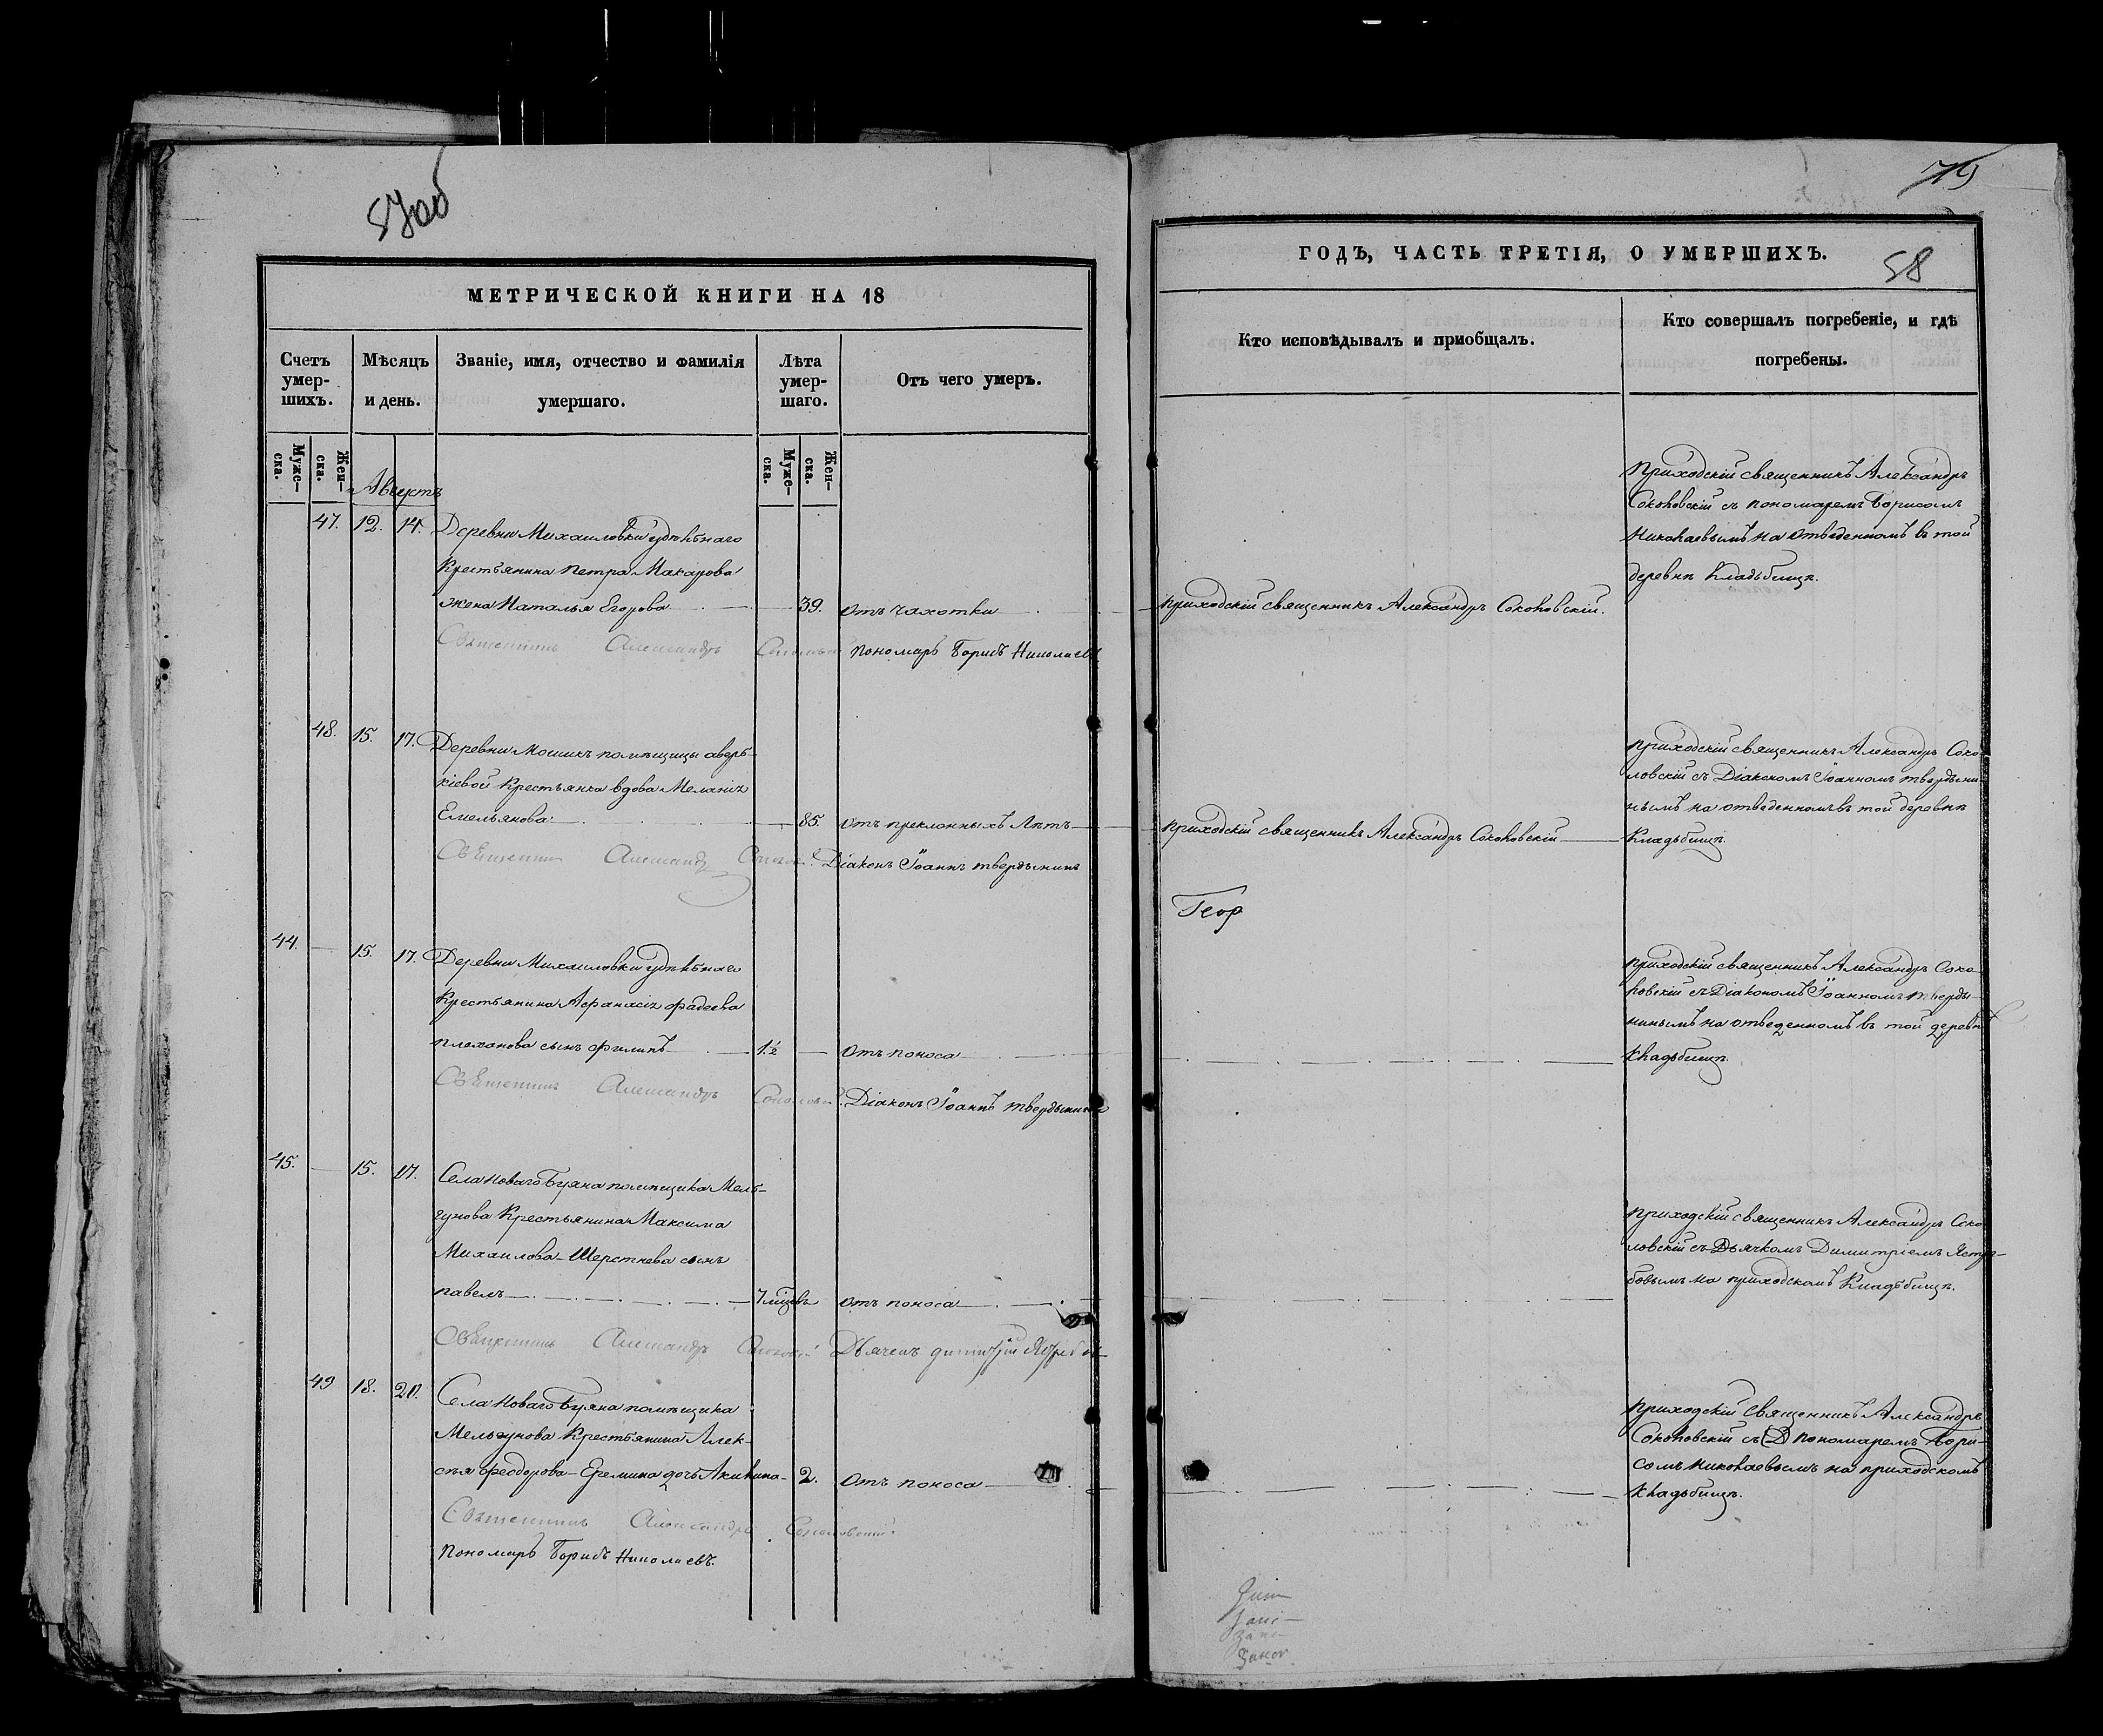 57об
МЕТРИЧЕСКОЙ КНИГИ НА 18
Счетъ умер-шихъ.
Мѣсяцъ и день.
Званіе, имя, отчество и фамилія умершаго.
Лѣта умер-шаго.
Отъ чего умеръ.
Муже-ска.
Жен-ска.
Муже-ска.
Жен-ска.
Августъ
47. 12. 14. Деревни Михаиловки удѣльнаго
Крестьянина Петра Макарова
жена Наталья Егорова 39. отъ чахотки
Священникъ Александръ Пономарь Борисъ Николаевъ
48. 15. 17. Деревни Мошикъ помѣщицы аверь-
кіевой Крестьянка вдова Меланія
Емельянова 85. отъ преклонныхъ лѣтъ
Священникъ Александръ Діаконъ Іоаннъ твердынинъ
44. 15. 17. Деревни Михаиловки удѣльнаго
Крестьянина Афанасія фадеева
плеханова сынъ филипъ 1½ отъ поноса
Священникъ Александръ Діаконъ Іоаннъ твердынинъ
45. 15. 17. Села Новаго Буяна помѣщика Мель-
гунова Крестьянина Максима
Михаилова Шерстнева сынъ
павелъ 7 мѣсцвъ отъ поноса
Священникъ Александръ Дьячекъ димитрій
49 18. 20. Села Новаго Буяна помѣщика
Мельгунова Крестьянина Алек-
сѣя феодорова Еремина дочь Акилина 2. отъ поноса
Священникъ Александръ Соколовскій.
Пономарь Борисъ Николаевъ.
79
58
ГОДЪ, ЧАСТЬ ТРЕТІЯ, О УМЕРШИХЪ.
Кто исповѣдывалъ и пріобщалъ.
Кто совершалъ погребеніе, и гдѣ погребены.
приходскій священникъ Александръ
Соколовскій съ пономаремъ Борисомъ
Николаевымъ на отведенномъ въ той
деревнѣ кладьбищѣ.
приходскій священникъ Александръ Соколовскій.
приходскій священникъ Александръ Соко
ловскій съ Діакономъ Іоанномъ твердыни
нымъ на отведенномъ въ той деревнѣ
кладьбищѣ.
приходскій священникъ Александръ Соколовскій
Геор
приходскій священникъ Александръ Соко
ловскій съ Діакономъ Іоанномъ тверды-
нинымъ на отведенномъ въ той деревнѣ
кладьбищѣ.
приходскій священникъ Александръ Соко
ловскій съ Дьячкомъ Димитріемъ Ястре-
бовымъ на приходскомъ кладьбищѣ.
приходскій священникъ Александръ
Соколовскій съ пономаремъ Бори-
сомъ Николаевымъ на приходскомъ
кладьбищѣ.